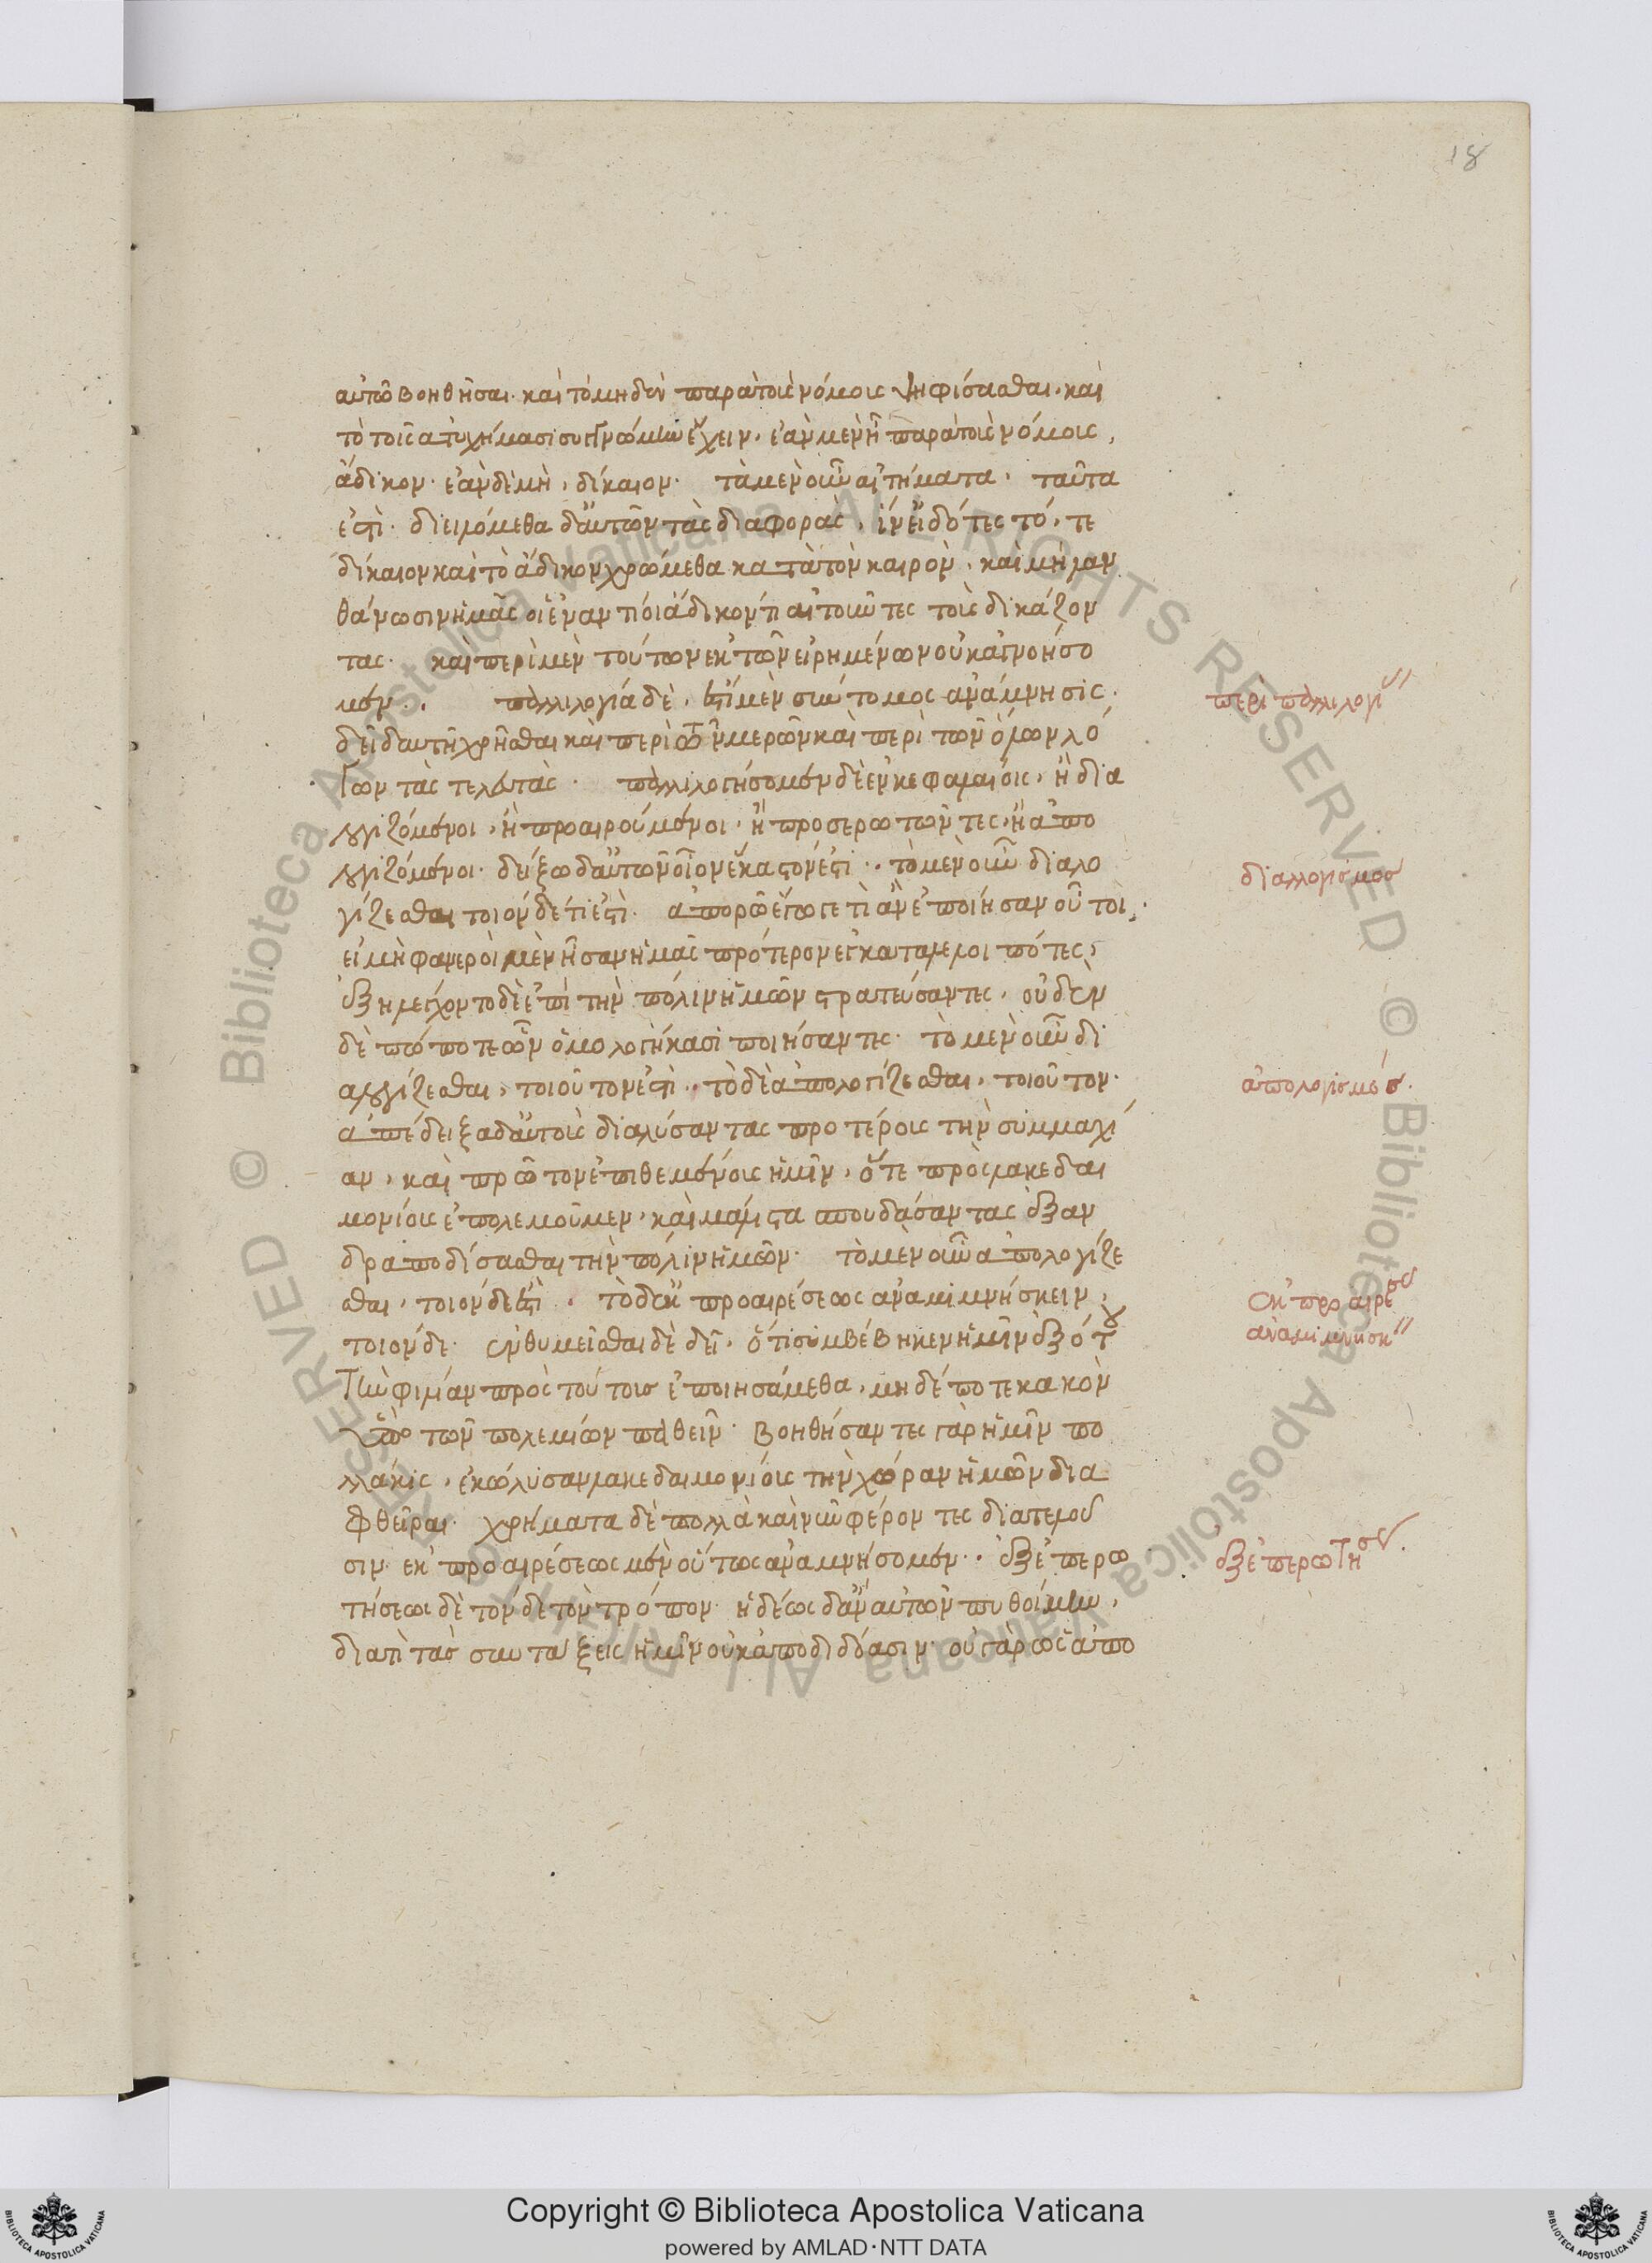 18
αὐτῶ βοηθῆσαι· καὶ τὸ μηδὲν παρὰ τοὺς νόμους ψηφίσασθαι, καὶ
τὸ τοῖς ἀτυχήμασι συγγνώμην ἔχειν, ἐὰν μὲν ἦ παρὰ τοὺς νόμους,
ἄδικον· ἐὰν δὲ μὴ, δίκαιον· τὰ μὲν οὖν αἰτήματα, ταῦτα
ἐστὶ· διειλόμεθα δ' αὐτῶν τὰς διαφορὰς, ἵν' εἰδότες τό, τε
δίκαιον καὶ τὸ ἄδικον χρώμεθα κατὰ τὸν καιρὸν, καὶ μὴ λαν
θάνωσιν ἡμᾶς οἱ ἐναντίοι ἄδικόν τι αἰτοῦντες τοὺς δικάζον
τας· καὶ περὶ μὲν τούτων ἐκ τῶν εἰρημένων οὐκ ἀγνοήσο
μεν·. παλιλλογία δὲ, ἐστὶ μὲν σύντομος ἀνάμνησις·
περὶ παλιλλογί
δεῖ δ' αὐτῆ χρῆσθαι καὶ περὶ τῶν μερῶν καὶ περὶ τῶν ὅλων λό
γων τὰς τελευτὰς· παλιλλογήσομεν δὲ ἐν κεφαλαίοις, ἢ δια
λογιζόμενοι, ἢ προαιρούμενοι, ἢ προσερωτῶντες, ἢ ἀπο
λογιζόμενοι· δείξω δ' αὐτῶν οἷον ἕκαστόν ἐστι·. τὸ μὲν οὖν διαλο
διαλλογισμοσ
γίζεσθαι τοιόνδε τι ἐστὶ· ἀπορῶ ἔγωγε τὶ ἂν ἐποίησαν οὗτοι,
εἰ μὴ φανεροὶ μὲν ἦσαν ἡμᾶς πρότερον ἐγκαταλελοιπότες,
ἐξηλέγχοντο δὲ ἐπὶ τὴν πόλιν ἡμῶν στρατεύσαντες, οὐδὲν
δὲ πώποτε ὧν ὁμολογήκασι ποιήσαντες· τὸ μὲν οὖν δι
αλογίζεσθαι, τοιοῦτον ἐστὶ·. τὸ δὲ ἀπολογίζεσθαι, τοιοῦτον·
ἀπολογισμόσ·
ἀπέδειξα δ' αὐτοὺς διαλύσαντας προτέρους τὴν συμμαχί
αν, καὶ πρῶτον ἐπιθεμένους ἡμῖν, ὅτε πρὸς λακεδαι
μονίους ἐπολεμοῦμεν, καὶ μάλιστα σπουδάσαντας ἐξαν
δραποδίσασθαι τὴν πόλιν ἡμῶν· τὸ μὲν οὖν ἀπολογίζε
σθαι, τοιόνδε ἐστὶ·. τὸ δ' ἐκ προαιρέσεως ἀναμιμνήσκειν,
ἐκ προαιρέσε
τοιόνδε· ἐνθυμεῖσθαι δὲ δεῖ, ὅτι συμβέβηκεν ἡμῖν ἐξ ὅτου
ἀναμιμνησκ
τὴν φιλίαν πρὸς τούτους ἐποιησάμεθα, μηδέποτε κακὸν
ὑπὸ τῶν πολεμίων παθεῖν· βοηθήσαντες γὰρ ἡμῖν πο
λλάκις, ἐκώλυσαν λακεδαιμονίους τὴν χώραν ἡμῶν δια
φθεῖραι· χρήματα δὲ πολλὰ καὶ νῦν φέροντες διατελοῦ
σιν· ἐκ προαιρέσεως μὲν οὕτως ἀναμνήσομεν·. ἐξ ἐπερω
ἐξ ἐπερωτήσε·
τήσεως δὲ τόνδε τὸν τρόπον· ἡδέως δ' ἂν αὐτῶν πυθοίμην,
διατὶ τὰς συντάξεις ἡμῖν οὐκ ἀποδιδόασιν· οὐ γὰρ ὡς ἀπο